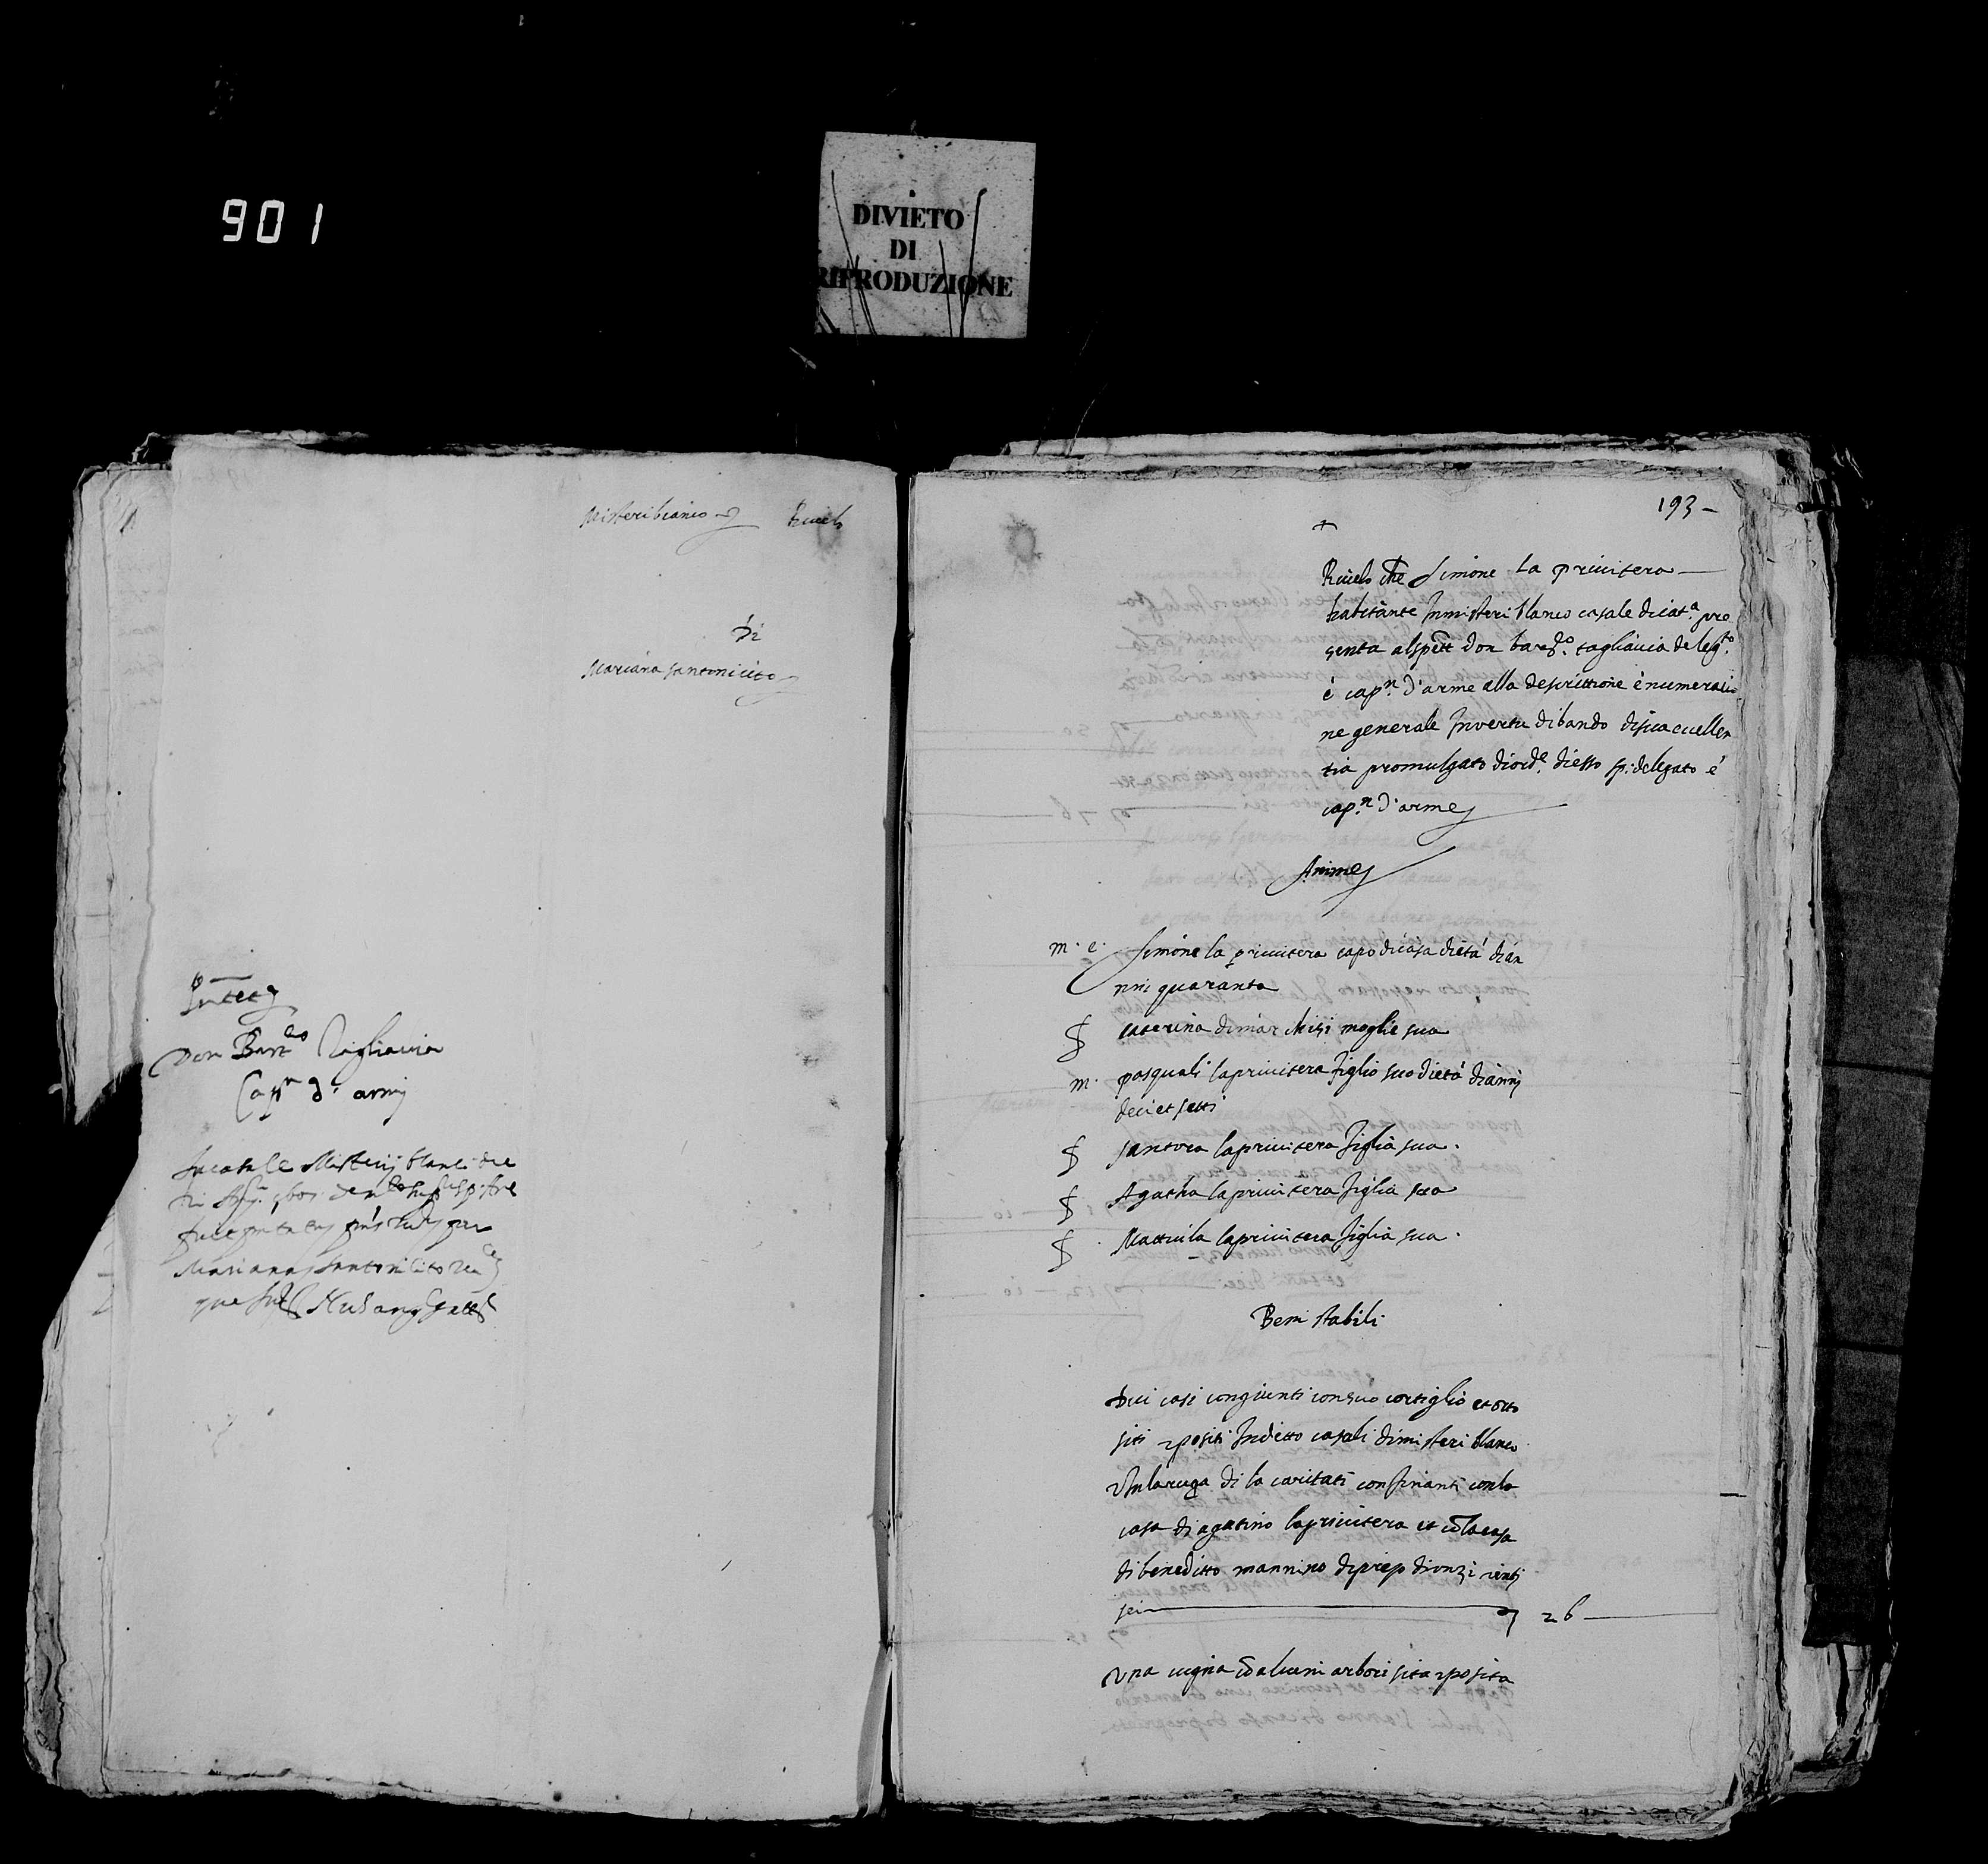 901
DIVIETO
DI
RIPRODUZIONE
Misteribianco Rivelo
Di
Mariana Santonicito
Don Bart.eo Tagliavia
Cap.n d'armi
Mariana Santonicito
193
Rivelo che Simone la privitera
habitante Inmisteri blanco casale dicat.a pre
senta alspett Don bart.o tagliavia deleg.to
è cap.n d'arme alla descrittione è numeratio
ne generale Invertu dibando disua eccellen
tia promulgato diord.e diesso sp: delegato è
cap.n d'arme
Anime
m. c. Simone la privitera capo dicasa dietà dian
nni quaranta
f caterina dimarchisi moglie sua
m. pasquali laprivitera figlio suo dietà dianni
deci et setti
f santora laprivitera figlia sua.
f Agatha laprivitera figlia sua
f Mattiula laprivitera figlia sua.
Beni stabili
Dui casi congiunti consuo cortiglio et orto
siti et positi Inditto casali dimisteri blanco
Inlaruga di la caritati confinanti conla
casa di agatino laprivitera et cōlacasa
di beneditto mannino diprezo dionzi vinti
sei 26
Una vigna cō alcuni arbori sita et posita